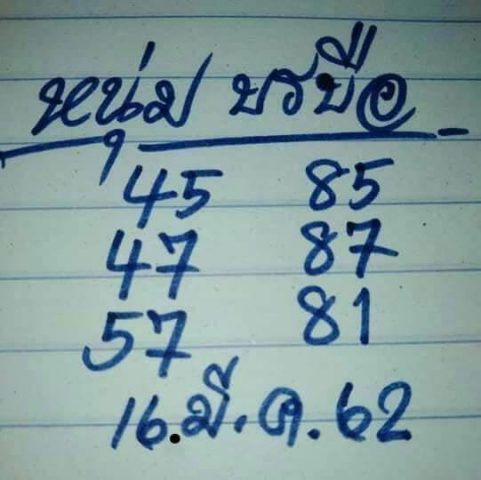 หนุ่ม บรบือ
45 85
47 87
57 81
16.มี.ค.62